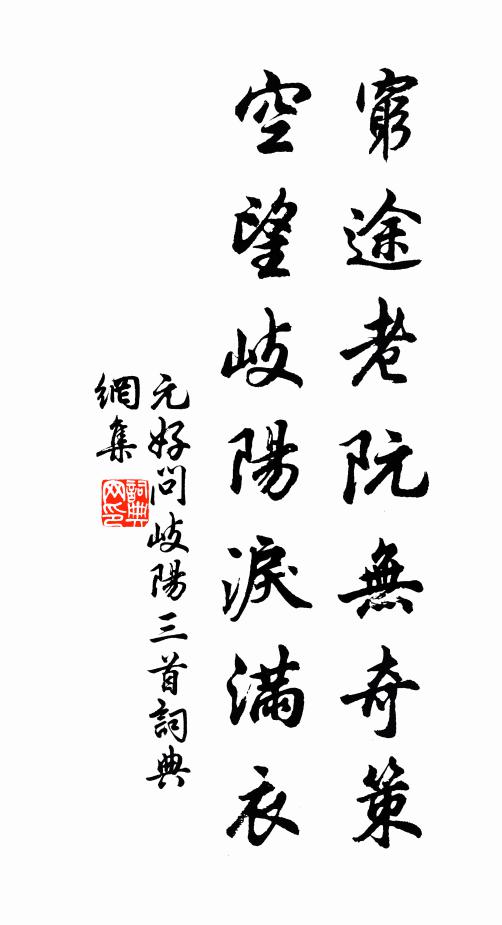 窮途老阮無奇策
空望岐陽淚滿衣
元好问岐陽三首詞典
網集
詞典
网印